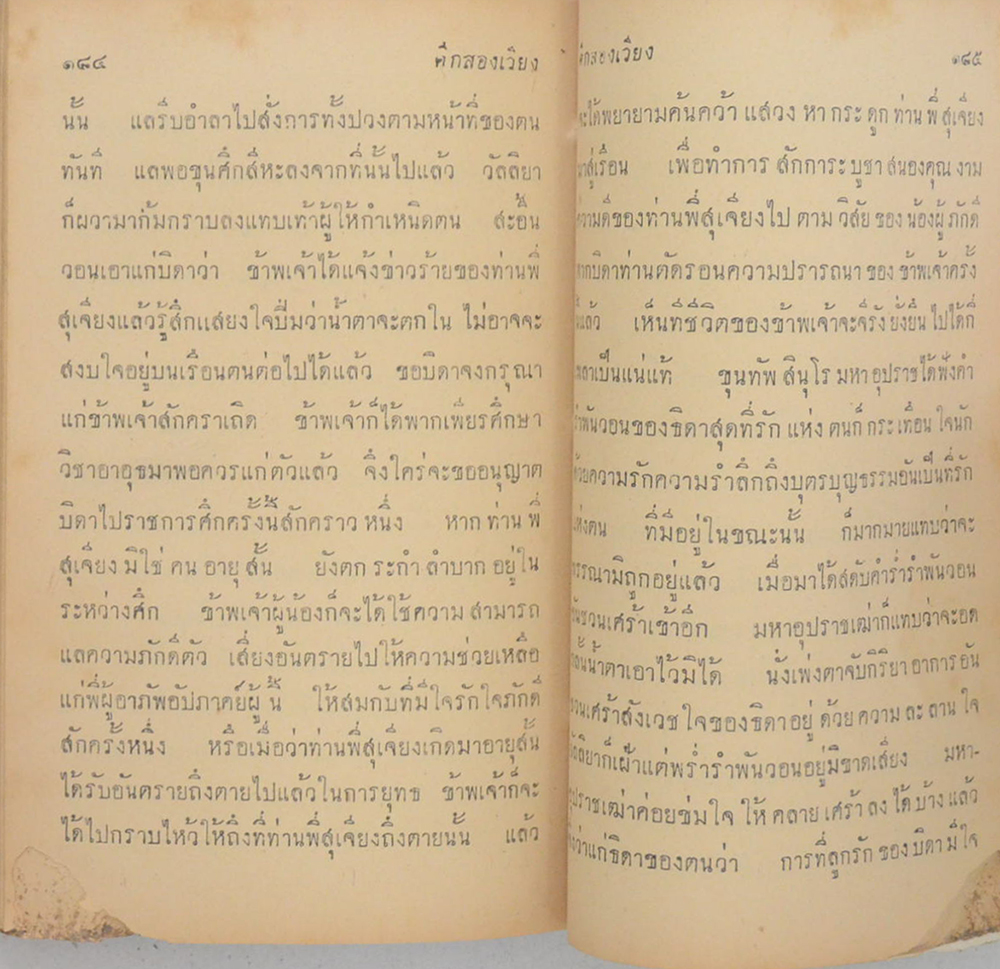 ๑๘๔ ศึกสองเวียง
นั้น แลรีบอำลาไปสั่งการทั้งปวงตามหน้าที่ของตน
ทันที แลพอขุนศึกสีหะลงจากที่นั้นไปแล้ว วัลลิยา
ก็ผวามาก้มกราบลงแทบเท้าผู้ให้กำเหนิดตน สะอื้น
วอนเอาแก่บิดาว่า ข้าพเจ้าได้แจ้งข่าวร้ายของท่านพี่
สุเจียงแล้วรู้สึกแสยงใจปิ่มว่าน้ำตาจะตกใน ไม่อาจจะ
สงบใจอยู่บนเรือนตนต่อไปได้แล้ว ขอบิดาจงกรุณา
แก่ข้าพเจ้าสักคราเถิด ข้าพเจ้าก็ได้พากเพียรศึกษา
วิชาอาอุธมาพอควรแก่ตัวแล้ว จึงใคร่จะขออนุญาต
บิดาไปราชการศึกครั้งนี้สักคราว หนึ่ง หาก ท่าน พี่
สุเจียง มิใช่ คน อายุ สั้น ยังตก ระกำ ลำบาก อยู่ใน
ระหว่างศึก ข้าพเจ้าผู้น้องก็จะได้ใช้ความ สามารถ
แลความภักดีตัว เสี่ยงอันตรายไปให้ความช่วยเหลือ
แก่พี่ผู้อาภัพอัปภาคย์ผู้ นี้ ให้สมกับที่มีใจรักใจภักดี
สักครั้งหนึ่ง หรือเมื่อว่าท่านพี่สุเจียงเกิดมาอายุสั้น
ได้รับอันตรายถึงตายไปแล้วในการยุทธ ข้าพเจ้าก็จะ
ได้ไปกราบไหว้ให้ถึงที่ท่านพี่สุเจียงถึงตายนั้น แล้ว
ศึกสองเวียง ๑๘๕
จะได้พยายามค้นคว้า แสวง หา กระ ดูก ท่าน พี่ สุเจียง
มาสู่เรือน เพื่อทำการ สักการะ บูชา สนองคุณ งาม
ความดีของท่านพี่สุเจียงไป ตาม วิสัย ของ น้องผู้ ภักดี
หากบิดาท่านตัดรอนความปรารถนา ของ ข้าพเจ้าครั้ง
นี้แล้ว เห็นทีชีวิตของข้าพเจ้าจะจีรัง ยั่งยืน ไปได้กี่
เพลาเป็นแน่แท้ ขุนทัพ สินุโร มหา อุปราชได้ฟังคำ
รำพันวอนของธิดาสุดที่รัก แห่ง ตนก็ กระ เทือน ใจนัก
ด้วยความรักความรำลึกถึงบุตรบุญธรรมอันเป็นที่รัก
แห่งตน ที่มีอยู่ในขณะนั้น ก็มากมายแทบว่าจะ
พรรณามิถูกอยู่แล้ว เมื่อมาได้สดับคำร่ำรำพันวอน
อันชวนเศร้าเข้าอีก มหาอุปราชเฒ่าก็แทบว่าจะอด
กลั้นน้ำตาเอาไว้มิได้ นั่งเพ่งตาจับกิริยา อาการ อัน
ชวนเศร้าสังเวช ใจของธิดา อยู่ ด้วย ความ ละ ลาน ใจ
วัลลิยาก็เฝ้าแต่พร่ำรำพันวอนอยู่มิขาดเสียง มหา-
อุปราชเฒ่าค่อยข่มใจ ให้ คลาย เศร้า ลง ได้ บ้าง แล้ว
จึงว่าแก่ธิดาของตนว่า การที่ลูกรัก ของ บิดา มี ใจ